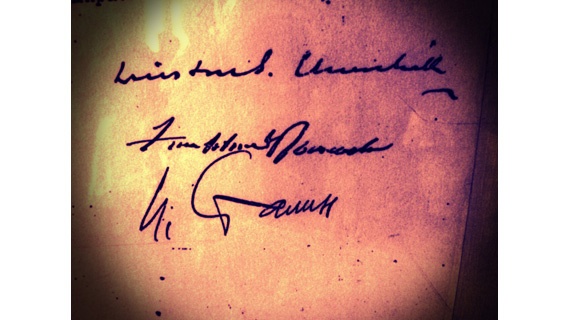 Winston S. Churchill
Franklin D Roosevelt
И. Сталин